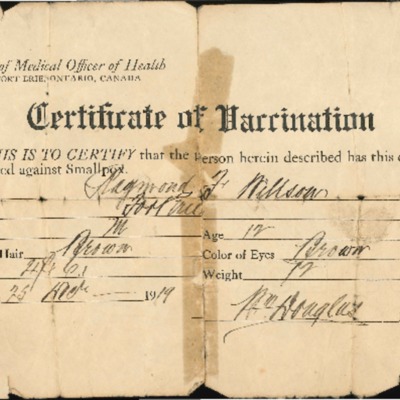 of Medical Officer of Health
ORT ERIE, ONTARIO, CANADA
Certificate of Vaccination
HIS IS TO CERTIFY that the person herein described has this d
ed against Smallpox.
Raymond F. Willson
M Age 12
Hair Brown Color of Eyes Brown
Weight
25 1919
Wm Douglas